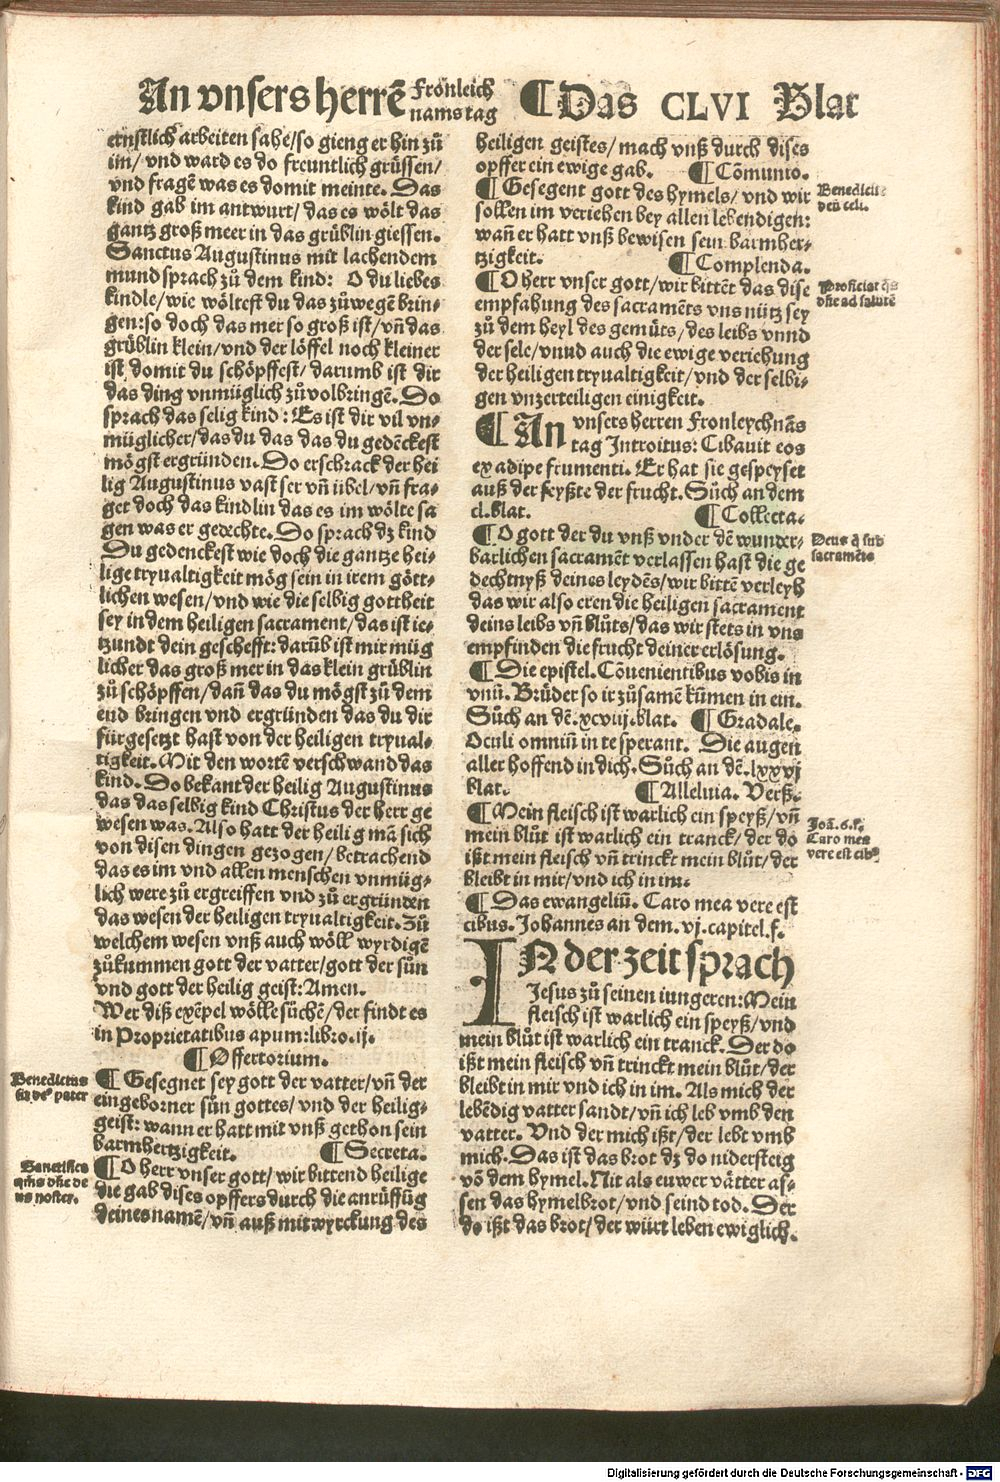 An vnsers herrē Fronleich
nams tag
¶ Das CLVI Blat
ernstlich arbeiten sahe/so gieng er hin zů
im/ vnd ward es do freuntlich grüssen/
vnd fragē was es domit meinte. Das
kind gab im antwurt/ das es wölt das
gantz groß meer in das grüblin giessen.
Sanctus Augustinus mit lachendem
mund sprach zů dem kind: O du liebes
kindle/wie wöltest du das zůwegē brin-
gen:so doch das mer so groß ist/vñ das
grüblin klein/vnd der löffel noch kleiner
ist domit du schöpffest/ darumb ist dir
das ding vnmüglich zůvolbringē. Do
sprach das selig kind : Es ist dir vil vn-
müglicher/das du das das du gedēckest
mögst ergründen. Do erschrack der hei
lig Augustinus vast ser vñ übel/vñ fra-
get doch das kindlin das es im wölte sa
gen was er gedechte. Do sprach dz kind
Du gedenckest wie doch die gantze hei-
lige tryualtigkeit mög sein in irem gött-
lichen wesen/vnd wie die selbig gottheit
sey in dem heiligen sacrament/das ist ie-
tzundt dein geschefft: darūb ist mir müg
licher das groß mer in das klein grüblin
zů schöpffen/dañ das du mögst zů dem
end bringen vnd ergründen das du dir
fürgesetzt hast von der heiligen tryual-
tigkeit. Mit den wortē verschwand das
kind. Do bekant der heilig Augustinus
das das selbig kind Christus der herr ge
wesen was. Also hatt der heilig mā sich
von disen dingen gezogen/betrachend
das es im vnd allen menschen vnmüg-
lich were zů ergreiffen vnd zů ergründen
das wesen der heiligen tryualtigkeit. Zů
welchem wesen vnß auch wöll wyrdigē
zůkummen gott der vatter/gott der sůn
vnd gott der heilig geist: Amen.
Wer diß exēpel wölle sůchē/der findt es
in Proprietatibus apum:libro.ij.
¶ Offertorium.
Benedictus
sit de⁹ pater
¶ Gesegnet sey gott der vatter/vñ der
eingeborner sůn gottes/ vnd der heilig-
geist: wann er hatt mit vnß gethon sein
barmhertzigkeit. ¶ Secreta.
Sanctifica
qs dñe de
us noster.
¶ O herr vnser gott/wir bittend heilige
die gab dises opffers durch die anrüffūg
deines namē/vñ auß mitwyrckung des
heiligen geistes/ mach vnß durch dises
opffer ein ewige gab. ¶ Cōmunio.
¶ Gesegent gott des hymels/ vnd wir
sollen im veriehen bey allen lebendigen:
wañ er hatt vnß bewisen sein barmher-
tzigkeit. ¶ Complenda.
Benedici-
deū celi.
¶ O herr vnser gott/wir bittēt das dise
empfahung des sacramēts vns nütz sey
zů dem heyl des gemůts/des leibs vnnd
der sele/vnnd auch die ewige veriehung
der heiligen tryualtigkeit/vnd der selbi-
gen vnzerteiligen einigkeit.
Proficiat
dñe ad salutē
¶ An vnsers herren Fronleychnās
tag Introitus: Cibauit eos
ex adipe frumenti. Er hat sie gespeyset
auß der feyßte der frucht. Sůch an dem
cl.blat. ¶ Collecta.
¶ O gott der du vnß vnder dē wunder-
barlichen sacramēt verlassen hast die ge
dechtnyß deines leydēs/wir bittē verleyh
das wir also eren die heiligen sacrament
deins leibs vñ blůts/das wir stets in vns
empfinden die frucht deiner erlösung.
Deus q̄ sub
sacramēto
¶ Die epistel. Cōuenientibus vobis in
vnū. Brüder so ir zůsamē kūmen in ein.
Sůch an dē.xcviij.blat. ¶ Gradale.
Oculi omniū in te sperant. Die augen
aller hoffend in dich. Sůch an dē.lxxvj
blat. ¶ Alleluia. Verß.
¶ Mein fleisch ist warlich ein speyß/vñ
mein blůt ist warlich ein tranck/ der do
ißt mein fleisch vñ trinckt mein blůt/der
bleibt in mir/vnd ich in im.
Joā.6.f.
Caro mea
vere est cib⁹
¶ Das ewangeliū. Caro mea vere est
cibus. Johannes an dem.vj.capitel.f.
IN der zeit sprach
Jesus zů seinen iungeren:Mein
fleisch ist warlich ein speyß/vnd
mein blůt ist warlich ein tranck. Der do
ißt mein fleisch vñ trinckt mein blůt/der
bleibt in mir vnd ich in im. Als mich der
lebēdig vatter sandt/vñ ich leb vmb den
vatter. Vnd der mich ißt/der lebt vmb
mich. Das ist das brot dz do nidersteig
vō dem hymel. Nit als euwer vätter as-
sen das hymelbrot/vnd seind tod. Der
do ißt das brot/der würt leben ewiglich.
Digitalisierung gefördert durch die Deutsche Forschungsgemeinschaft - DFG